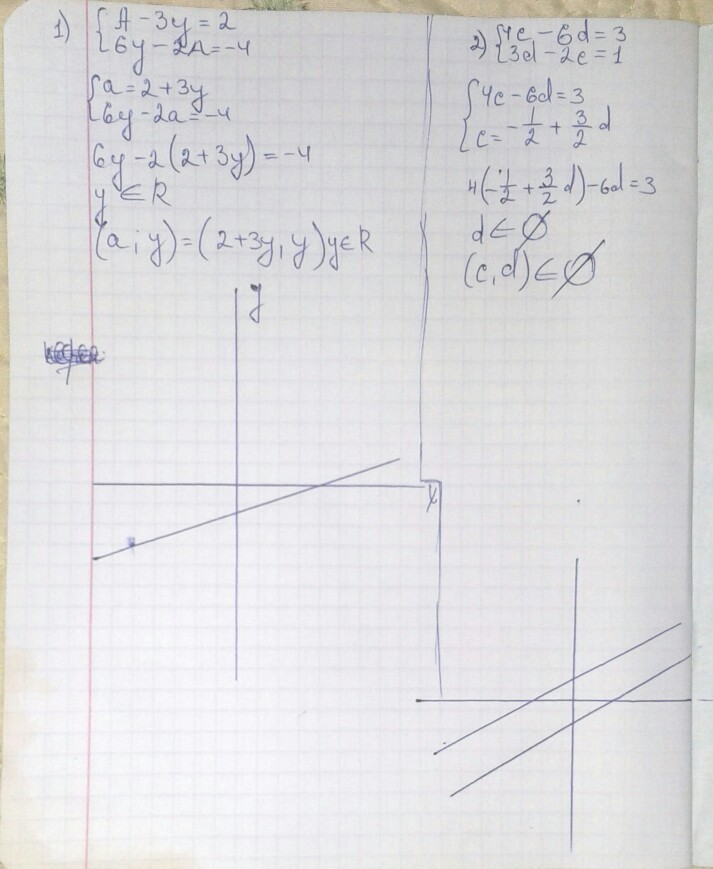 1) { A - 3y = 2
6y - 2A = -4
{ a = 2 + 3y
6y - 2a = -4
6y - 2(2 + 3y) = -4
y ∈ R
(a; y) = (2 + 3y, y) y ∈ R
y
x
2) { 4c - 6d = 3
3d - 2c = 1
{ 4c - 6d = 3
c = -1/2 + 3/2 d
4(-1/2 + 3/2 d) - 6d = 3
d ∈ ∅
(c, d) ∈ ∅